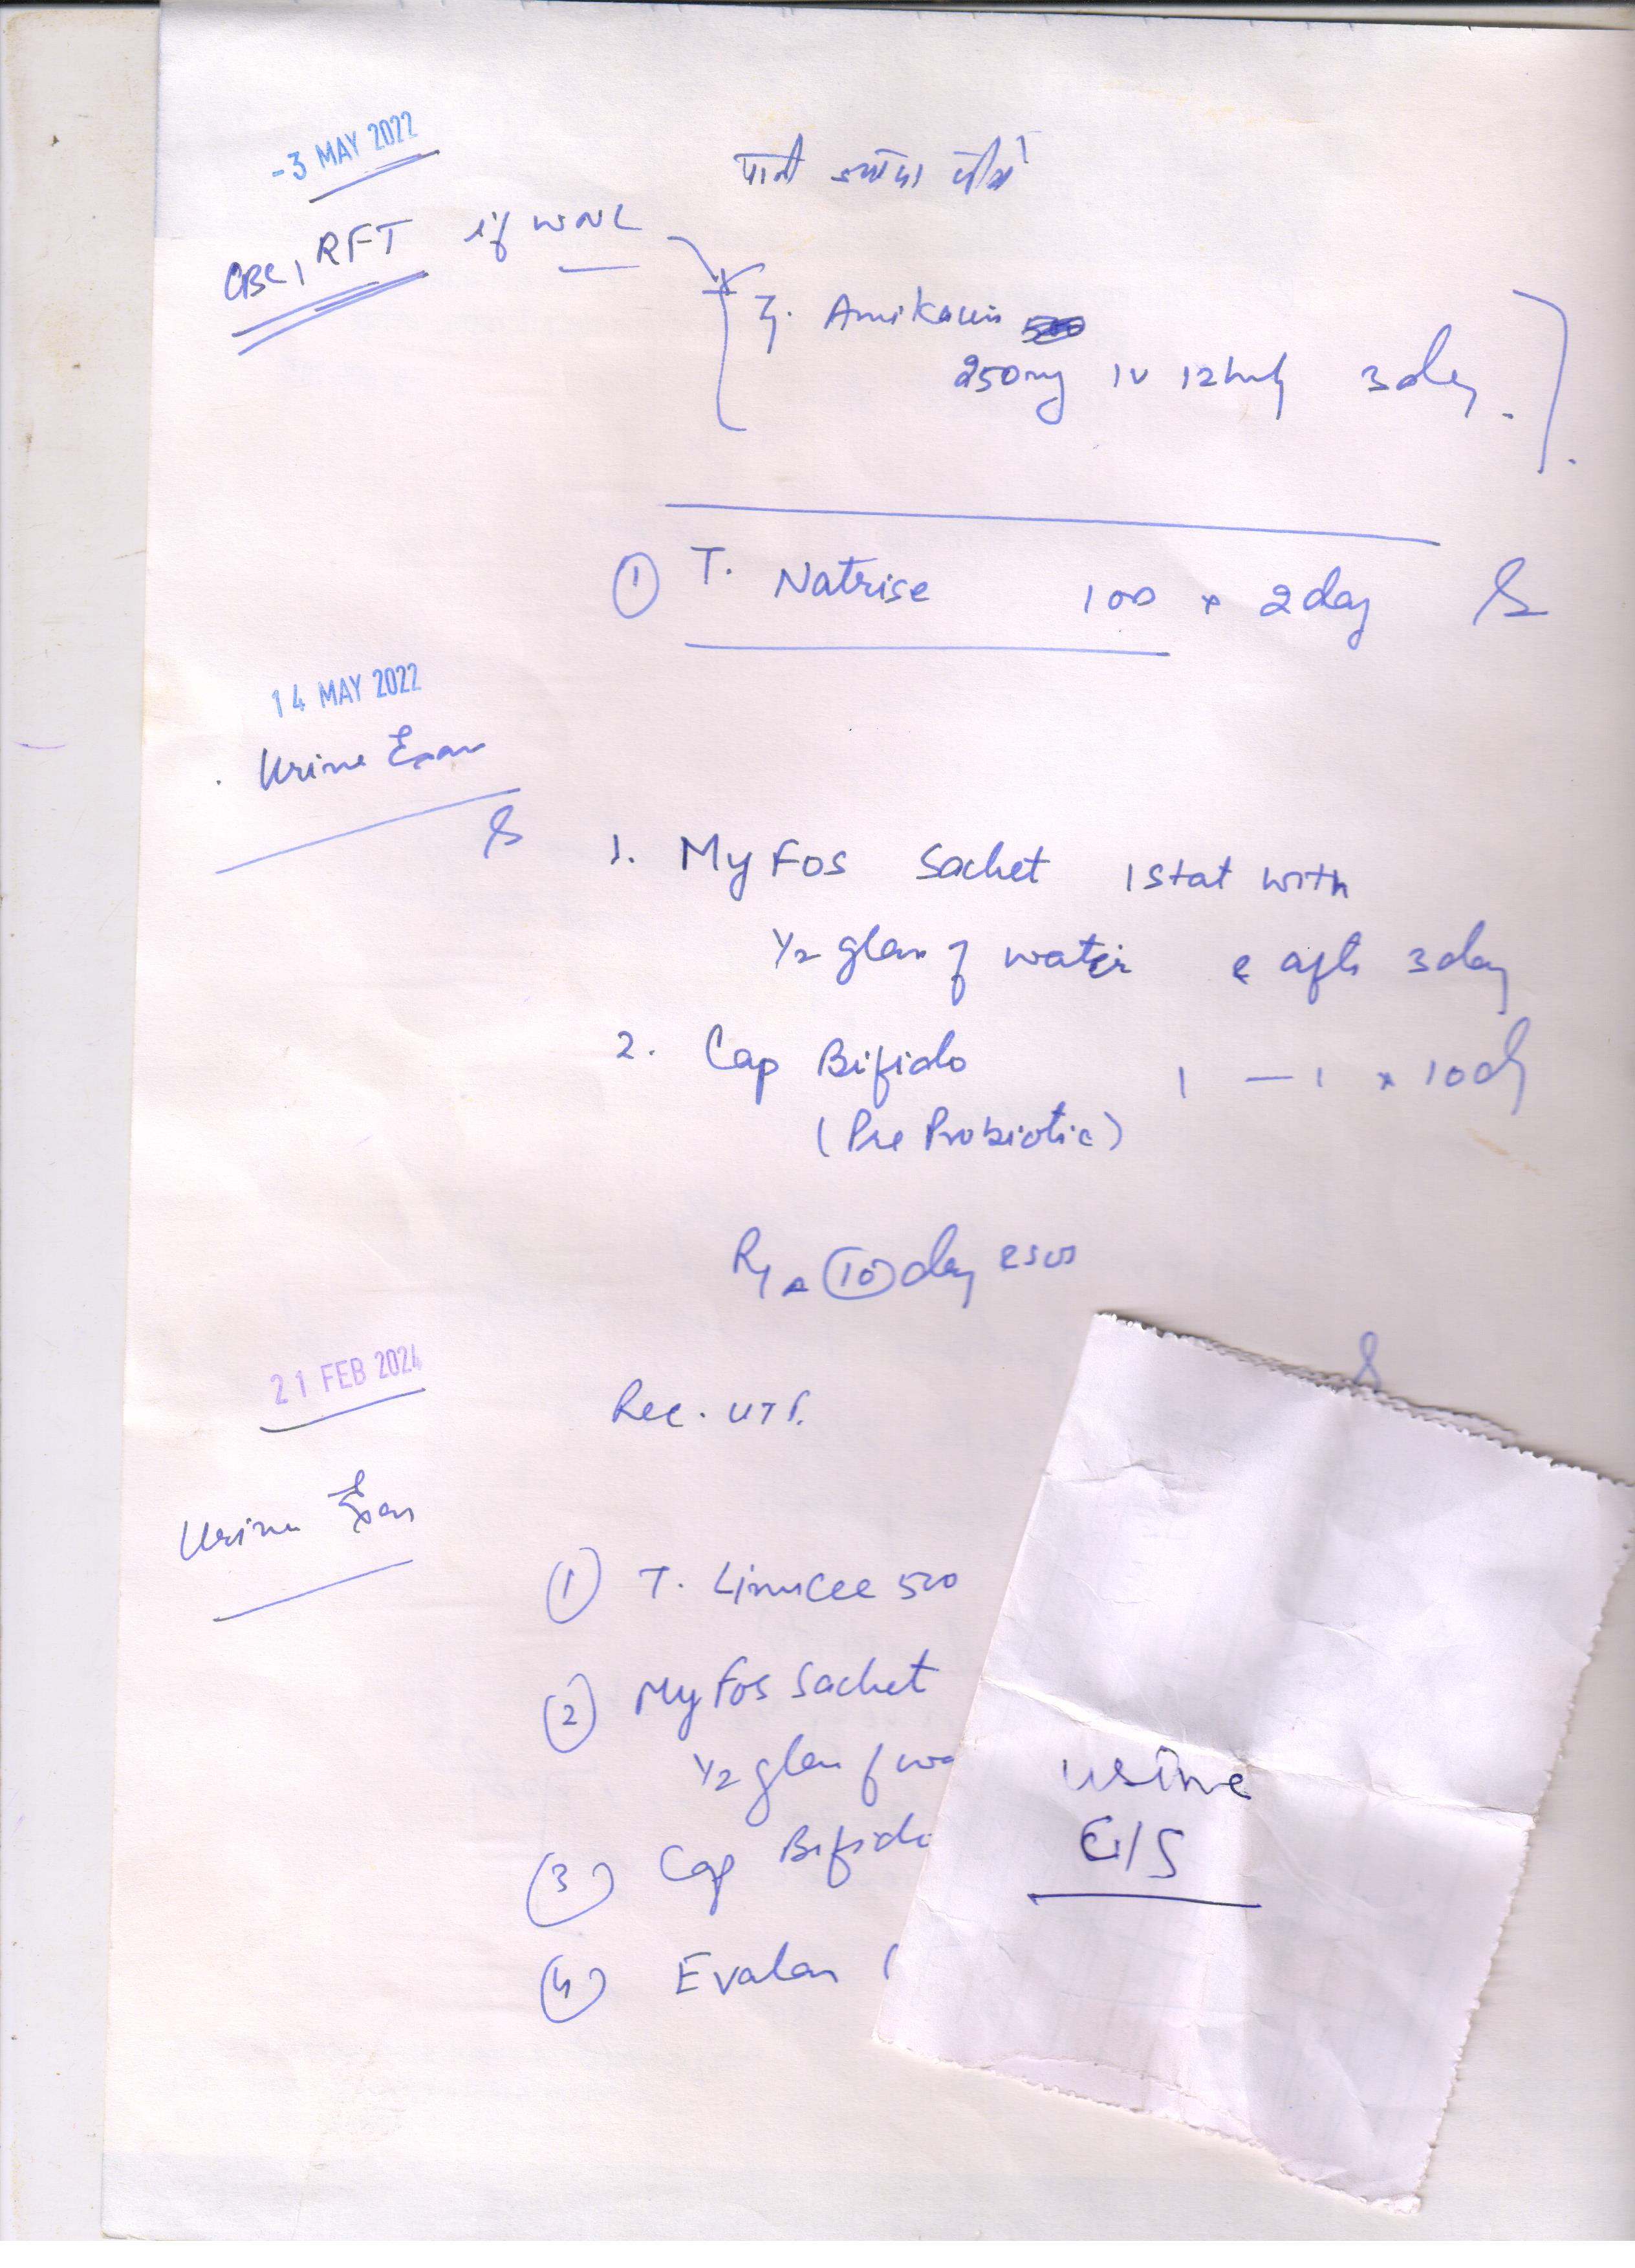 -3 MAY 2022
पानी ज्यादा पीये
CBC, RFT if WNL
Amikacin
250mg IV 12hrly 3day.
① T. Natrise 100 x 2day
14 MAY 2022
Urine Exam
1. Myfos Sachet 1 stat with
1/2 glass of water & after 3day
2. Cap Bifido 1 — 1 x 10d
(Pre Probiotic)
10 day
21 FEB 2024
Rec. UTI.
Urine Exam
① T. Limcee 500
② Myfos Sachet
1/2 glass of wa
③ Cap Bifido
④ Evalon (
urine
C/S